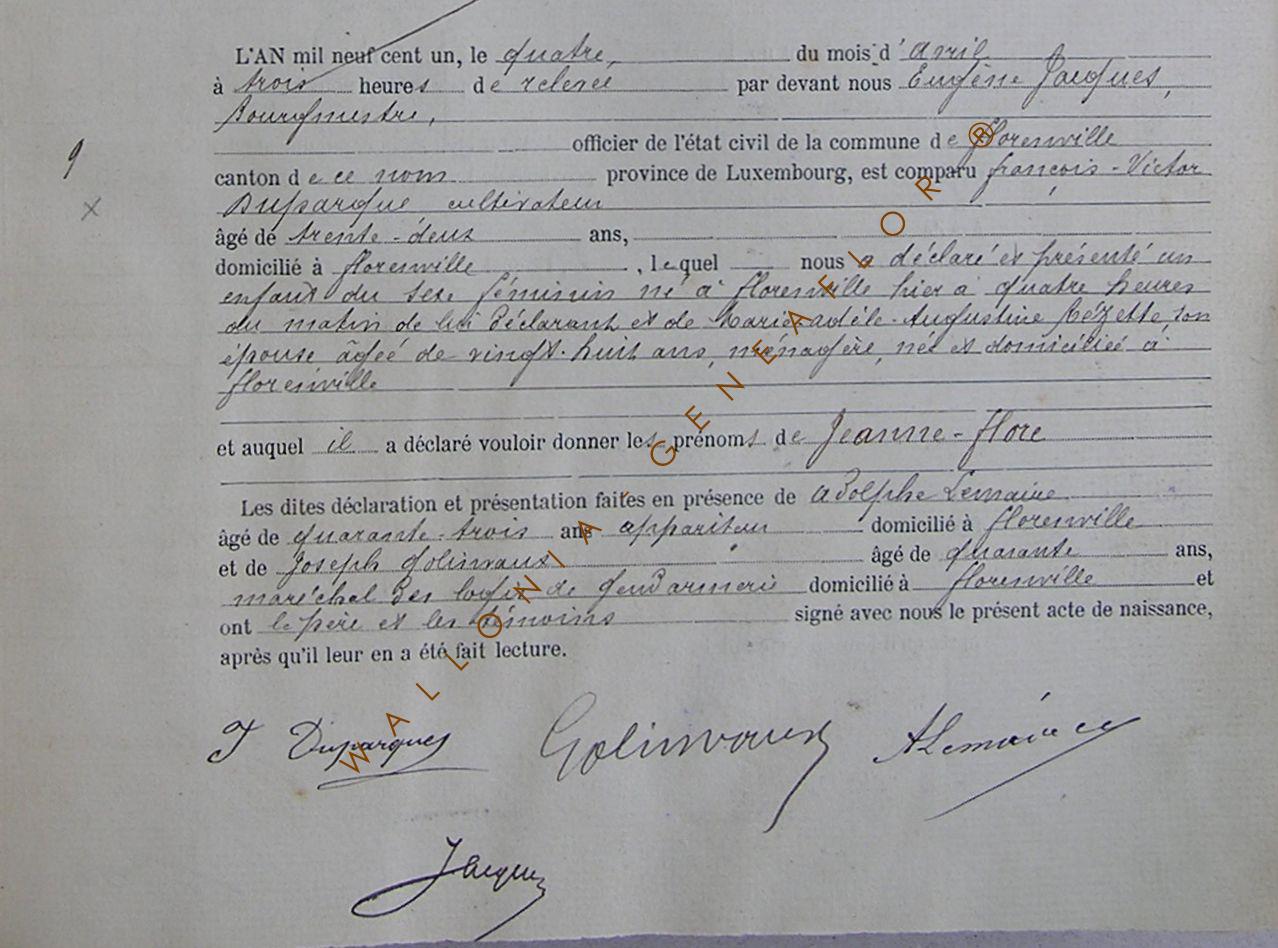 L'AN mil neuf cent un, le quatre, du mois d'avril
à trois heures de relevée par devant nous Eugène Jacques,
Bourgmestre,
officier de l'état civil de la commune de florenville
9
canton de ce nom province de Luxembourg, est comparu françois-Victor
Duparque cultivateur
x
âgé de trente-deux ans,
domicilié à florenville, lequel nous a déclaré et présenté un
enfant du sexe féminin né à florenville hier à quatre heures
du matin de lui déclarant et de Marie-adèle-Augustine Cézette, son
épouse âgée de vingt-huit ans, ménagère, née et domiciliée à
florenville
et auquel il a déclaré vouloir donner les prénoms de Jeanne-flore
Les dites déclaration et présentation faites en présence de adolphe Lemaire
âgé de quarante-trois ans appariteur domicilié à florenville
et de Joseph Golinvaux âgé de quarante ans,
maréchal des logis de gendarmerie domicilié à florenville et
ont le père et les témoins signé avec nous le présent acte de naissance,
après qu'il leur en a été fait lecture.
Duparque Golinvaux ALemaire
Jacques
WALLONIA-GENEAFLOR®